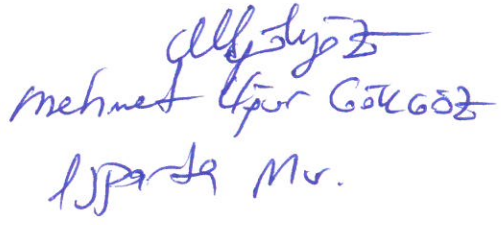 Mehmet Uğur GÖKGÖZ
Isparta Mv.